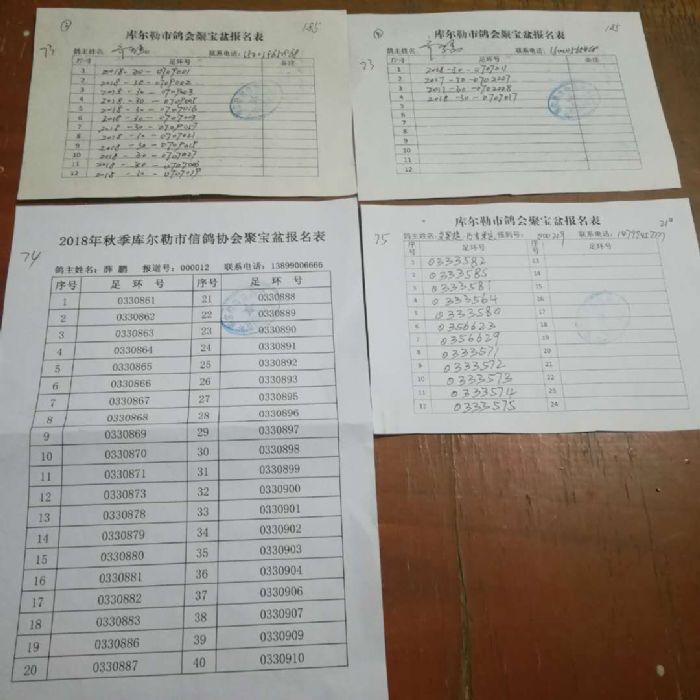 ③
185
库尔勒市鸽会聚宝盆报名表
73
鸽主姓名：
联系电话：
序号 足环号 备注
1 2018-30-0707001
2 2018-30-0707002
3 2018-30-0707003
4 2018-30-
5 2018-30-
6 2018-30-
7 2018-30-0707017
8 2018-30-0707021
9 2018-30-
10 2018-30-0707027
11 2018-30-
12 2018-30-
185
库尔勒市鸽会聚宝盆报名表
73
鸽主姓名：
联系电话：
序号 足环号 备注
1 2018-30-0707011
2 2017-30-0702007
3 2017-30-0702008
4 2018-30-0707017
5
6
7
8
9
10
11
12
74
2018年秋季库尔勒市信鸽协会聚宝盆报名表
鸽主姓名：薛 鹏 报道号：000012 联系电话：13899006666
序号 足 环 号 序号 足 环 号
1 0330861 21 0330888
2 0330862 22 0330889
3 0330863 23 0330890
4 0330864 24 0330891
5 0330865 25 0330892
6 0330866 26 0330893
7 0330867 27 0330895
8 0330868 28 0330896
9 0330869 29 0330897
10 0330870 30 0330898
11 0330871 31 0330899
12 0330873 32 0330900
13 0330878 33 0330901
14 0330879 34 0330902
15 0330880 35 0330903
16 0330881 36 0330904
17 0330882 37 0330906
18 0330883 38 0330907
19 0330886 39 0330909
20 0330887 40 0330910
75
库尔勒市鸽会聚宝盆报名表
鸽主姓名: 联系电话：
序号 足环号 足环号
1 0333582 13
2 0333585 14
3 0333581 15
4 0333564 16
5 0333580 17
6 0356623 18
7 0356629 19
8 0333571 20
9 0333572 21
10 0333573 22
11 0333574 23
12 0333575 24